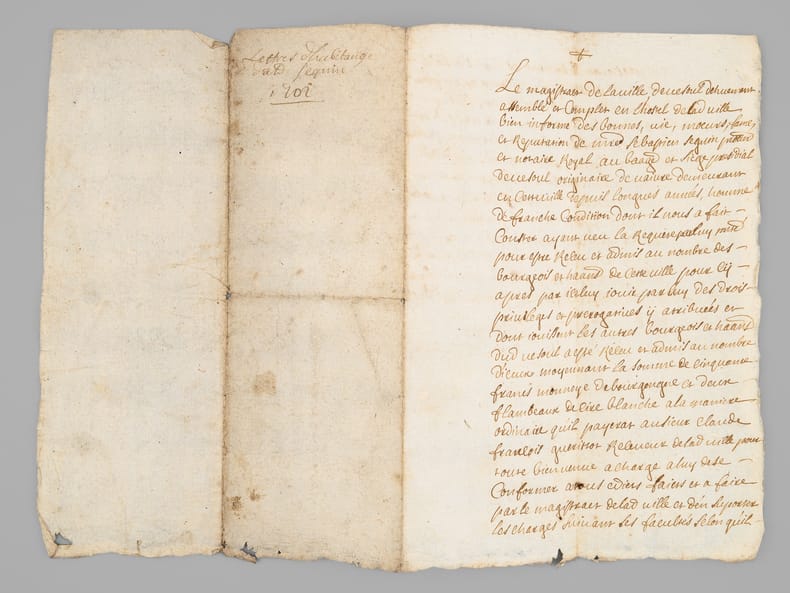 Lettres d'habitange
du d. Seguin
1701
Le magistrat de la ville de vesoul
assemblé et Complet en lhostel de lad ville
bien informé des bonnes, vie, mœurs, fame,
et Reputation de mre Sebastien Seguin
et notaire Royal au baage et Siege presidial
de vesoul originaire de demeurant
en Cette ville depuis longues années, homme
de franche Condition dont il nous a fait
Conster ayant veu la Requeste
pour estre Receu et admis au nombre des
bourgeois et haans de Cette ville pour Cy
apres par iceluy iouir par luy des droits
privileges et prerogatives y attribuées et
dont iouissent les autres bourgeois et haans
dud vesoul a esté Receu et admis au nombre
d'iceux moyennant la somme de Cinquante
francs monnoye de bourgongne et deux
flambeaux de Cire blanche a la maniere
ordinaire qu'il payerat au sieur Claude
françois Receveur de lad ville pour
toute bienvenue a charge a luy de se
Conformer a tous edicts faicts et a faire
par le magistrat de lad ville et d'en Suporter
les charges Suivant Ses facultés Selon qu'il